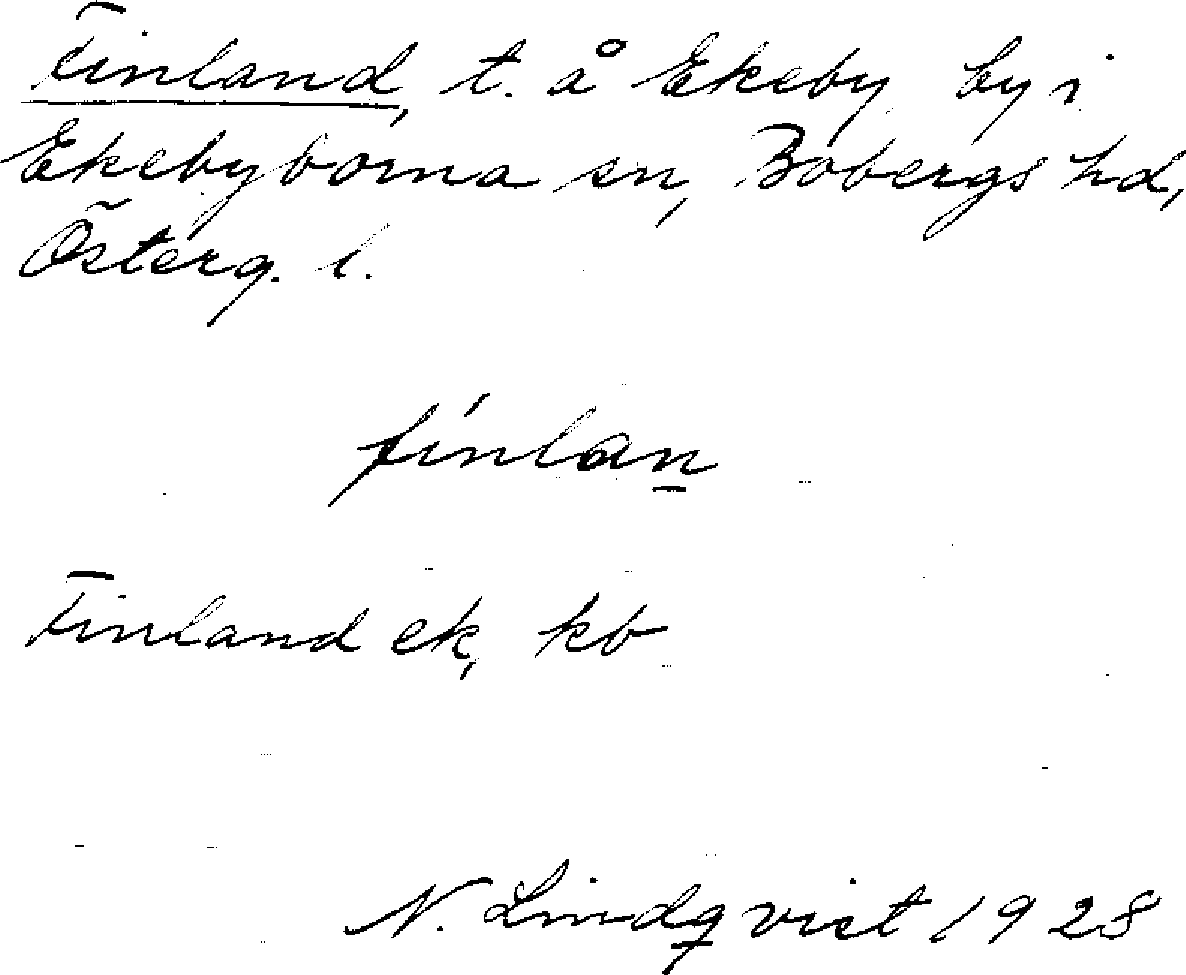 Finland, t. å Ekeby by i
Ekebyborna sn, Bobergs hd,
Österg. l.
fínlan
Finland ek, kb
N. Lindqvist 1928